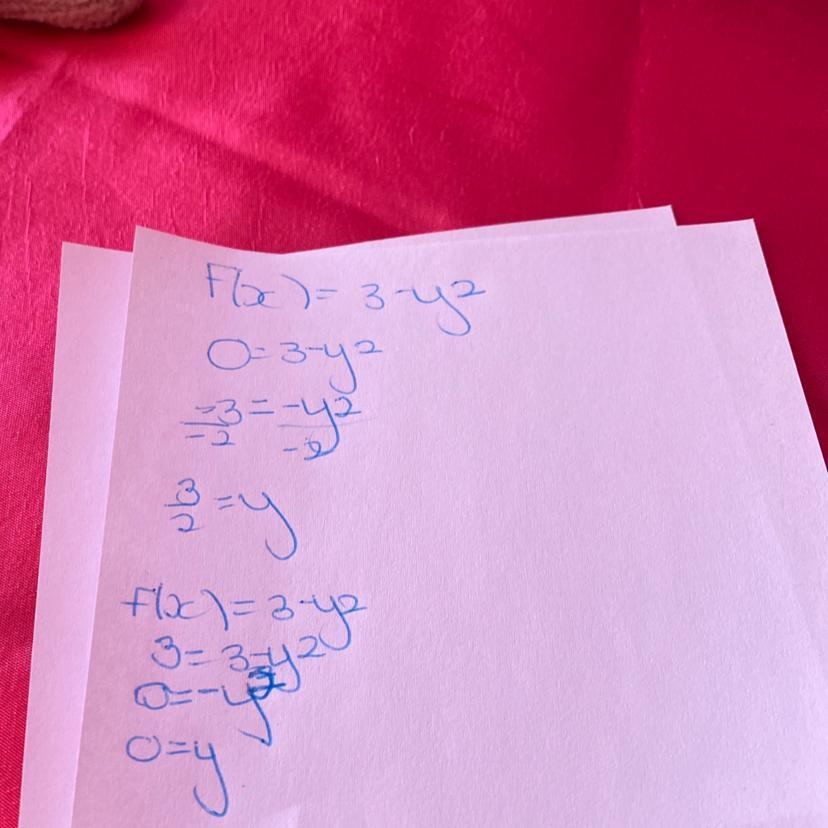 F(x) = 3-y2
0=3-y2
-3/-2 = -y2/-2
3/2 = y
f(x) = 3-y2
3 = 3-y2
0=-y2
0=y